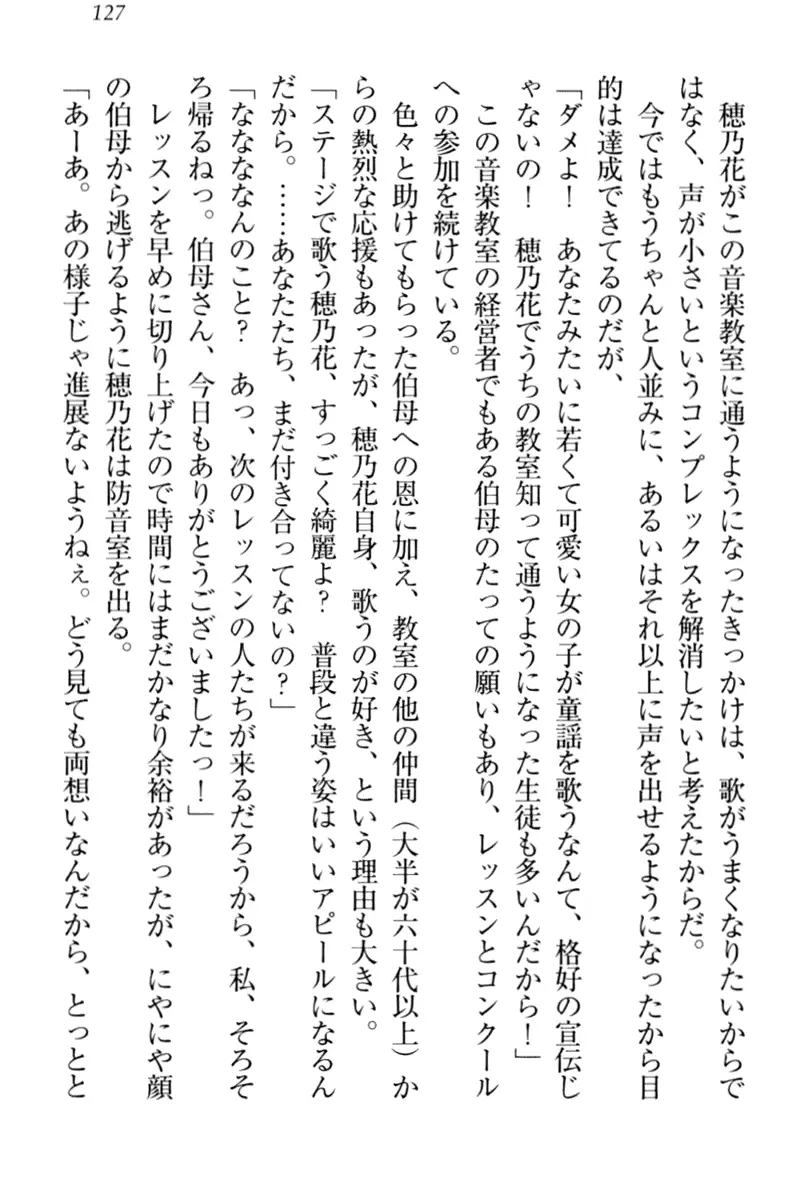 127
穂乃花がこの音楽教室に通うようになったきっかけは、歌がうまくなりたいからで
はなく、声が小さいというコンプレックスを解消したいと考えたからだ。
今ではもうちゃんと人並みに、あるいはそれ以上に声を出せるようになったから目
的は達成できてるのだが、
「ダメよ！　あなたみたいに若くて可愛い女の子が童謡を歌うなんて、格好の宣伝じ
ゃないの！　穂乃花でうちの教室知って通うようになった生徒も多いんだから！」
この音楽教室の経営者でもある伯母のたっての願いもあり、レッスンとコンクール
への参加を続けている。
色々と助けてもらった伯母への恩に加え、教室の他の仲間（大半が六十代以上）か
らの熱烈な応援もあったが、穂乃花自身、歌うのが好き、という理由も大きい。
「ステージで歌う穂乃花、すっごく綺麗よ？　普段と違う姿はいいアピールになるん
だから。……あなたたち、まだ付き合ってないの？」
「ななななんのこと？　あっ、次のレッスンの人たちが来るだろうから、私、そろそ
ろ帰るねっ。伯母さん、今日もありがとうございましたっ！」
レッスンを早めに切り上げたので時間にはまだかなり余裕があったが、にやにや顔
の伯母から逃げるように穂乃花は防音室を出る。
「あーあ。あの様子じゃ進展ないようねぇ。どう見ても両想いなんだから、とっとと